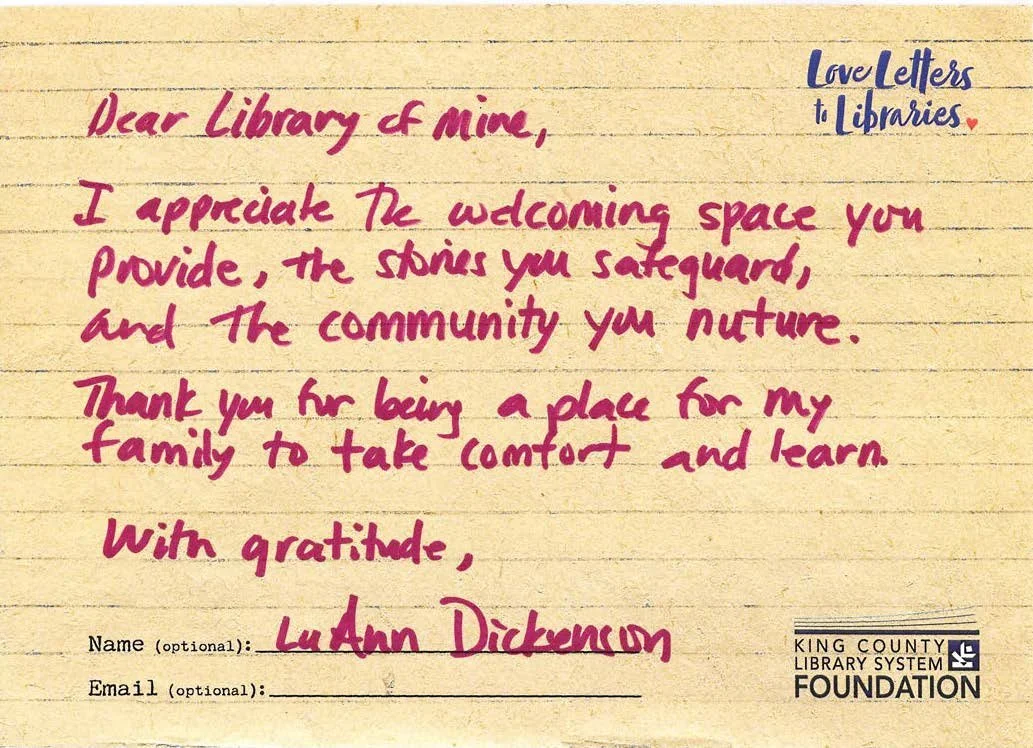 Love Letters
to Libraries
Dear Library of mine,
I appreciate The welcoming space you
provide, the stories you safeguard,
and The community you nuture.
Thank you for being a place for my
family to take comfort and learn.
With gratitude,
Name (optional): LuAnn Dickenson
Email (optional):
KING COUNTY
LIBRARY SYSTEM
FOUNDATION